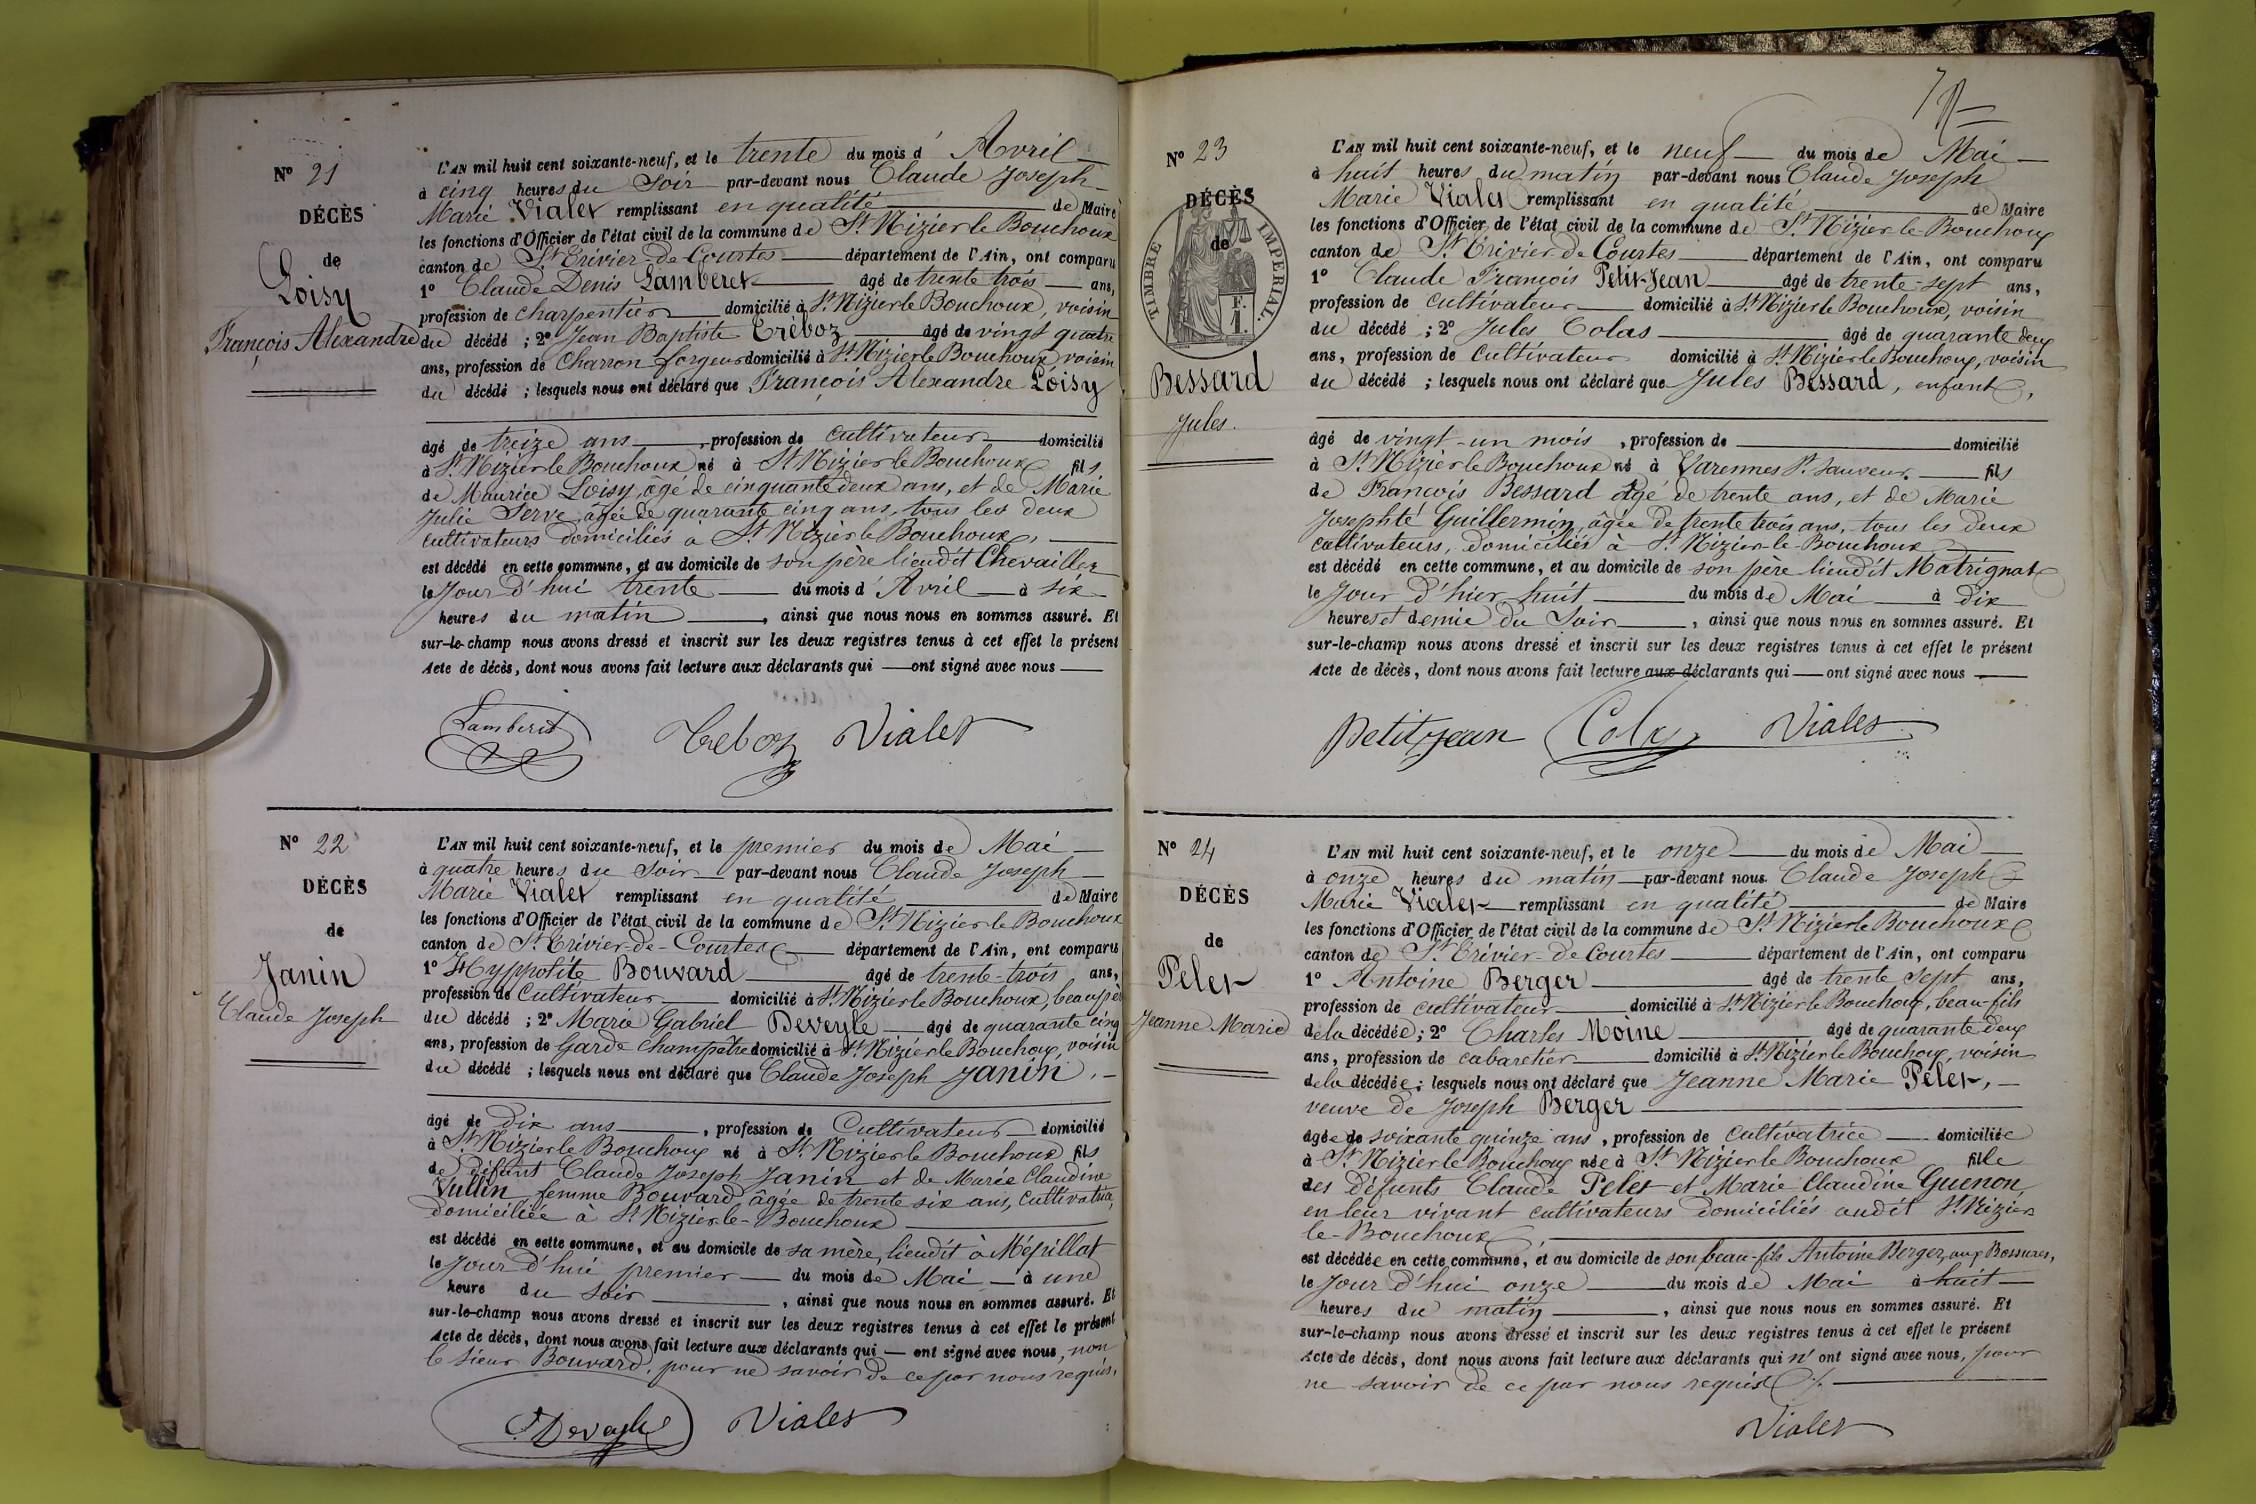 N° 21
DÉCÈS
de
Loisy
François Alexandre
L'AN mil huit cent soixante-neuf, et le trente du mois d'Avril
à cinq heures du Soir par-devant nous Claude Joseph
Marie Vialet remplissant en qualité de Maire
les fonctions d'Officier de l'état civil de la commune de St Nizier le Bouchoux
canton de St Trivier-de-Courtes département de l'Ain, ont comparu
1° Claude Denis Lamberet âgé de trente trois ans,
profession de charpentier domicilié à St Nizier le Bouchoux, voisin
du décédé ; 2° Jean Baptiste Tréboz âgé de vingt quatre
ans, profession de Charron forgeur domicilié à St Nizier le Bouchoux voisin
du décédé ; lesquels nous ont déclaré que François Alexandre Loisy
âgé de treize ans, profession de cultivateur domicilié
à St Nizier le Bouchoux né à St Nizier le Bouchoux fils
de Maurice Loisy, âgé de cinquante deux ans, et de Marie
Julie Serve, âgée de quarante cinq ans, tous les deux
cultivateurs domiciliés à St Nizier le Bouchoux,
est décédé en cette commune, et au domicile de son père lieudit Chevailler
le Jour d'hui trente du mois d'Avril à six
heures du matin, ainsi que nous nous en sommes assuré. Et
sur-le-champ nous avons dressé et inscrit sur les deux registres tenus à cet effet le présent
Acte de décès, dont nous avons fait lecture aux déclarants qui — ont signé avec nous
Lamberet Treboz Vialet
N° 22
DÉCÈS
de
Janin
Claude Joseph
L'AN mil huit cent soixante-neuf, et le premier du mois de Mai
à quatre heures du Soir par-devant nous Claude Joseph
Marie Vialet remplissant en qualité de Maire
les fonctions d'Officier de l'état civil de la commune de St Nizier le Bouchoux
canton de St Trivier-de-Courtes département de l'Ain, ont comparu
1° Hyppolite Bouvard âgé de trente-trois ans,
profession de Cultivateur domicilié à St Nizier le Bouchoux, beau père
du décédé ; 2° Marie Gabriel Deveyle âgé de quarante cinq
ans, profession de Garde Champêtre domicilié à St Nizier le Bouchoux, voisin
du décédé ; lesquels nous ont déclaré que Claude Joseph Janin,
âgé de dix ans, profession de Cultivateur domicilié
à St Nizier le Bouchoux né à St Nizier le Bouchoux fils
de défunt Claude Joseph Janin et de Marie Claudine
Vullin femme Bouvard âgée de trente six ans, Cultivatrice,
domiciliée à St Nizier-le-Bouchoux
est décédé en cette commune, et au domicile de sa mère, lieudit à Mépillat
le Jour d'hui premier du mois de Mai à une
heure du soir, ainsi que nous nous en sommes assuré. Et
sur-le-champ nous avons dressé et inscrit sur les deux registres tenus à cet effet le présent
Acte de décès, dont nous avons fait lecture aux déclarants qui — ont signé avec nous, non
le sieur Bouvard, pour ne savoir de ce par nous requis.
Deveyle Vialet
N° 23
DÉCÈS
de
TIMBRE IMPÉRIAL.
F.
1.
Bessard
Jules.
L'AN mil huit cent soixante-neuf, et le neuf du mois de Mai
à huit heures du matin par-devant nous Claude Joseph
Marie Vialet remplissant en qualité de Maire
les fonctions d'Officier de l'état civil de la commune de St Nizier le Bouchoux
canton de St Trivier de Courtes département de l'Ain, ont comparu
1° Claude François Petit-Jean âgé de trente-sept ans,
profession de cultivateur domicilié à St Nizier le Bouchoux, voisin
du décédé ; 2° Jules Colas âgé de quarante deux
ans, profession de Cultivateur domicilié à St Nizier le Bouchoux, voisin
du décédé ; lesquels nous ont déclaré que Jules Bessard, enfant,
âgé de vingt-un mois, profession de domicilié
à St Nizier le Bouchoux né à Varennes St Sauveur. fils
de François Bessard âgé de trente ans, et de Marie
Josephté Guillermin, âgée de trente trois ans, tous les deux
cultivateurs, domiciliés à St Nizier-le-Bouchoux
est décédé en cette commune, et au domicile de son père lieudit Matrignat
le Jour d'hier huit du mois de Mai à dix
heures et demie du Soir, ainsi que nous nous en sommes assuré. Et
sur-le-champ nous avons dressé et inscrit sur les deux registres tenus à cet effet le présent
Acte de décès, dont nous avons fait lecture aux déclarants qui — ont signé avec nous
Petitjean Colas Vialet
N° 24
DÉCÈS
de
Pelet
Jeanne Marie
L'AN mil huit cent soixante-neuf, et le onze du mois de Mai
à onze heures du matin par-devant nous Claude Joseph
Marie Vialet remplissant en qualité de Maire
les fonctions d'Officier de l'état civil de la commune de St Nizier le Bouchoux
canton de St Trivier-de-Courtes département de l'Ain, ont comparu
1° Antoine Berger âgé de trente sept ans,
profession de cultivateur domicilié à St Nizier le Bouchoux, beau-fils
de la décédée ; 2° Charles Moine âgé de quarante deux
ans, profession de cabaretier domicilié à St Nizier le Bouchoux, voisin
de la décédée ; lesquels nous ont déclaré que Jeanne Marie Pelet,
veuve de Joseph Berger
âgée de soixante quinze ans, profession de Cultivatrice domiciliée
à St Nizier le Bouchoux née à St Nizier le Bouchoux fille
des défunts Claude Pelet et Marie Claudine Guenon,
en leur vivant cultivateurs domiciliés audit St Nizier
le-Bouchoux,
est décédée en cette commune, et au domicile de son beau-fils Antoine Berger, aux Bossures,
le Jour d'hui onze du mois de Mai à huit
heures du matin, ainsi que nous nous en sommes assuré. Et
sur-le-champ nous avons dressé et inscrit sur les deux registres tenus à cet effet le présent
Acte de décès, dont nous avons fait lecture aux déclarants qui n'ont signé avec nous, pour
ne savoir de ce par nous requis.
Vialet